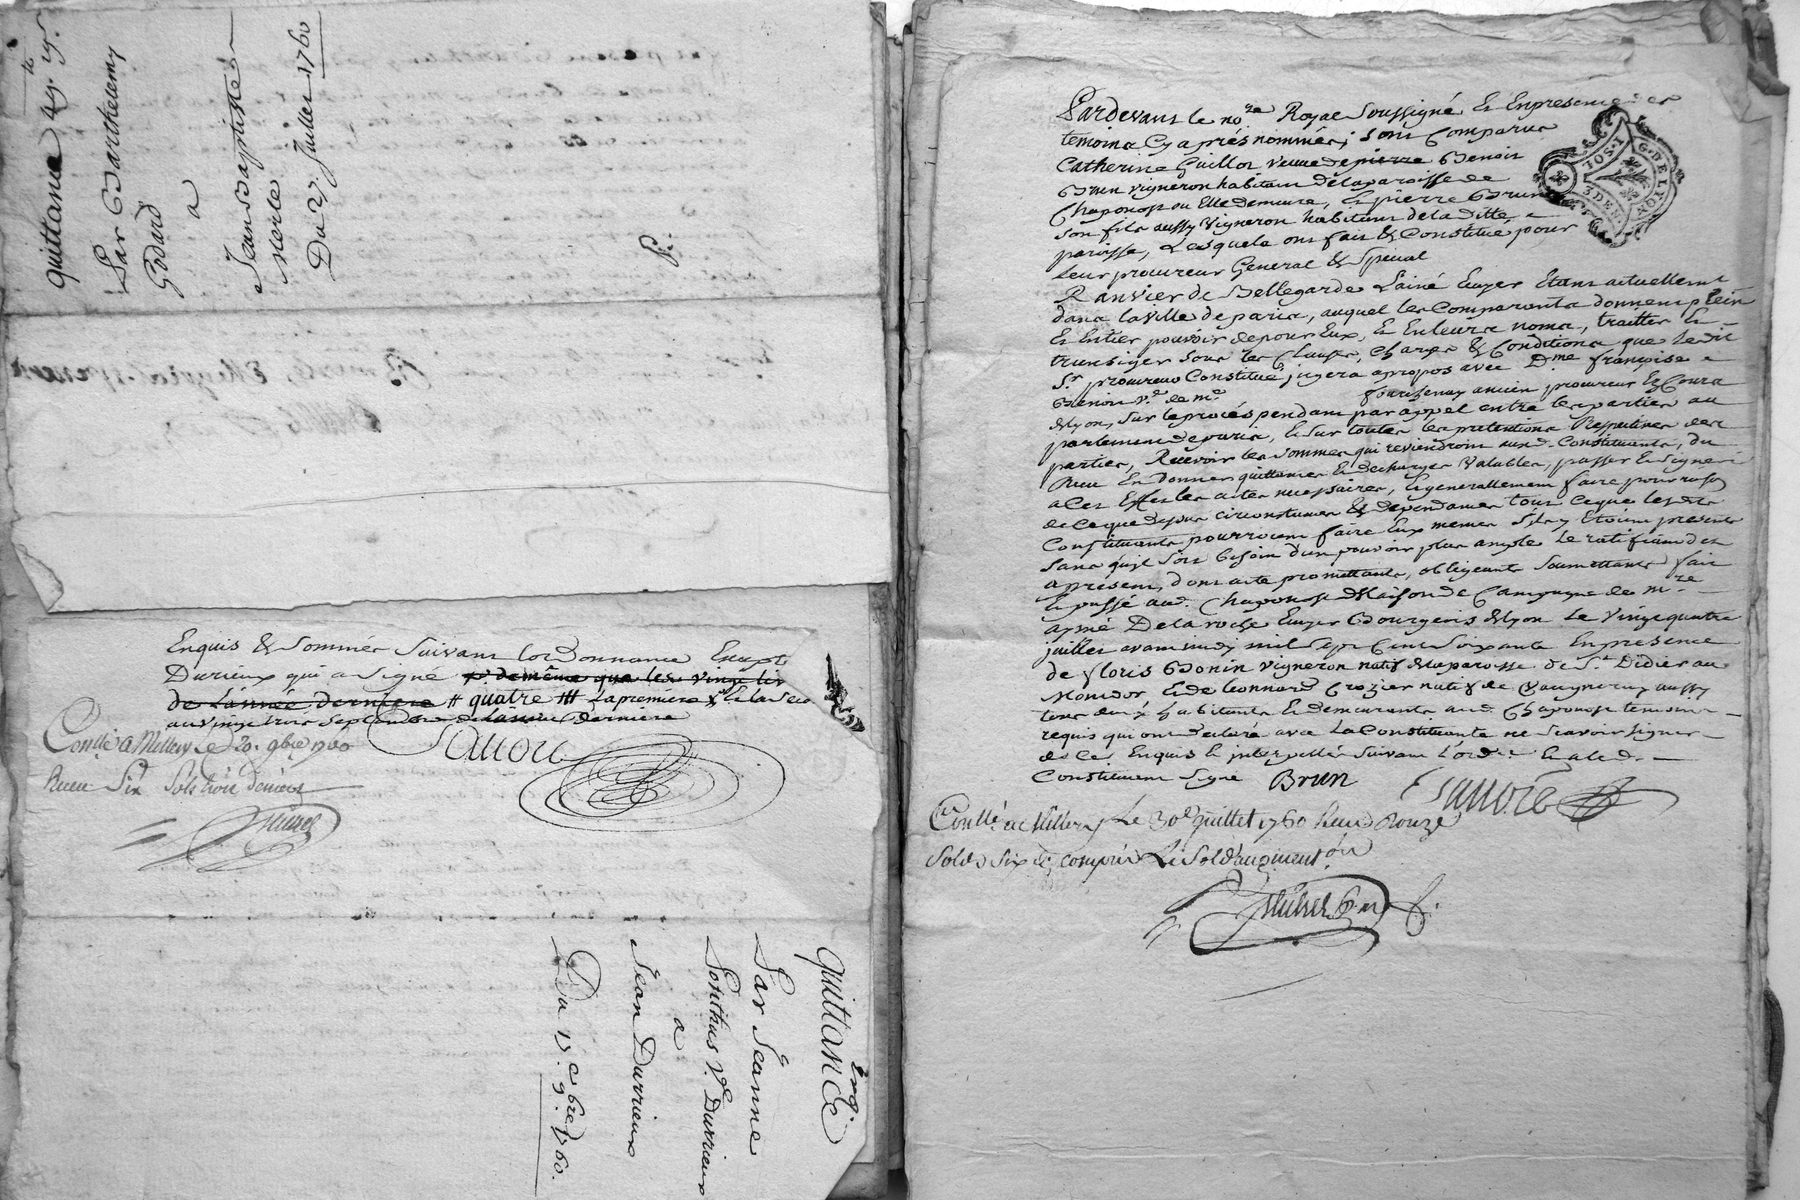 quittance 49. 19.
Par Barthelemy
Godard
a
Jean Baptiste
Merle
Du 27. Juillet 1760
Enquis & sommés suivant lordonnance Excepté
Durieux qui a signé et demême que les vingt liv
de Lannée derniere # quatre ### La premiere & Et la Seco
au vingt trois Septembre de Lannée derniere
Conllé a Millery Le 20. 9bre 1760
Receu Six Sols trois deniers
quittance
Par Jeanne
Sonthus Ve. Durrieux
a
Jean Durrieux
Du 17. 9bre 1760.
Pardevant le nore Royal Soussigné Et En presence des
temoins Cy aprés nommés; sont Comparus
Catherine Guillot veuve de pierre Benoit
Brun vigneron habitant de la paroisse de
Chaponost ou Elle demeure, Et pierre Brun
son fils aussy vigneron habitant de la ditte
paroisse, Lesquels ont fait & Constitué pour
leur procureur General & Special
Ranvier de Bellegarde Lainé Ecuyer Etant actuellement
dans la ville de paris, auquel les Comparants donnent plein
Et Entier pouvoir de pour Eux, Et En leurs noms, traitter Et
transiger sous les Clauses, Charges & Conditions que Ledit
Sr. procureur Constitué jugera apropos avec Dme françoise
Benoit ve. de me. ancien procureur Es Cours
de Lyon, Sur le procés pendant par appel entre les parties au
parlement de paris, Et sur toutes les pretentions Respectives des
parties, Recevoir les sommes qui reviendront aux d. Constituants, du
Receu En donner quittances Et decharges Valables, passer Et signer
a Cet Effet les actes necessaires, Et generallement faire pour raison
de Ce que dessus circonstances & dependances tout ce que lesdits
Constituants pourroient faire Eux memes S'ils y Etoient presents
sans qu'il soit besoin d'un pouvoir plus ample Le ratifiant des
apresent, dont acte promettants, obligeants soumettants fait
Et passé aud. Chaponost Maison de Campagne de mre
aymé Delaroche Ecuyer Bourgeois de Lyon Le vingt quatre
juillet avant midy mil Sept Cent Soixante En presence
de floris Bonin vigneron natif de la paroisse de St. Didier au
Montdor Et de leonnard Crozier natif de Vaugneray aussy
tous deux habitants Et demeurants aud. Chaponost temoins
requis qui ont declaré avec La Constituante ne Scavoir signer
de Ce Enquis Et interpellés suivant L'ord.
Constituant Signé Brun
Conllé a Millery Le 30e Juillet 1760 Receu Douze
Sols Six ds compris Le Sol d'augmenton
IOS. I
3 DEN.
G. DE LYON